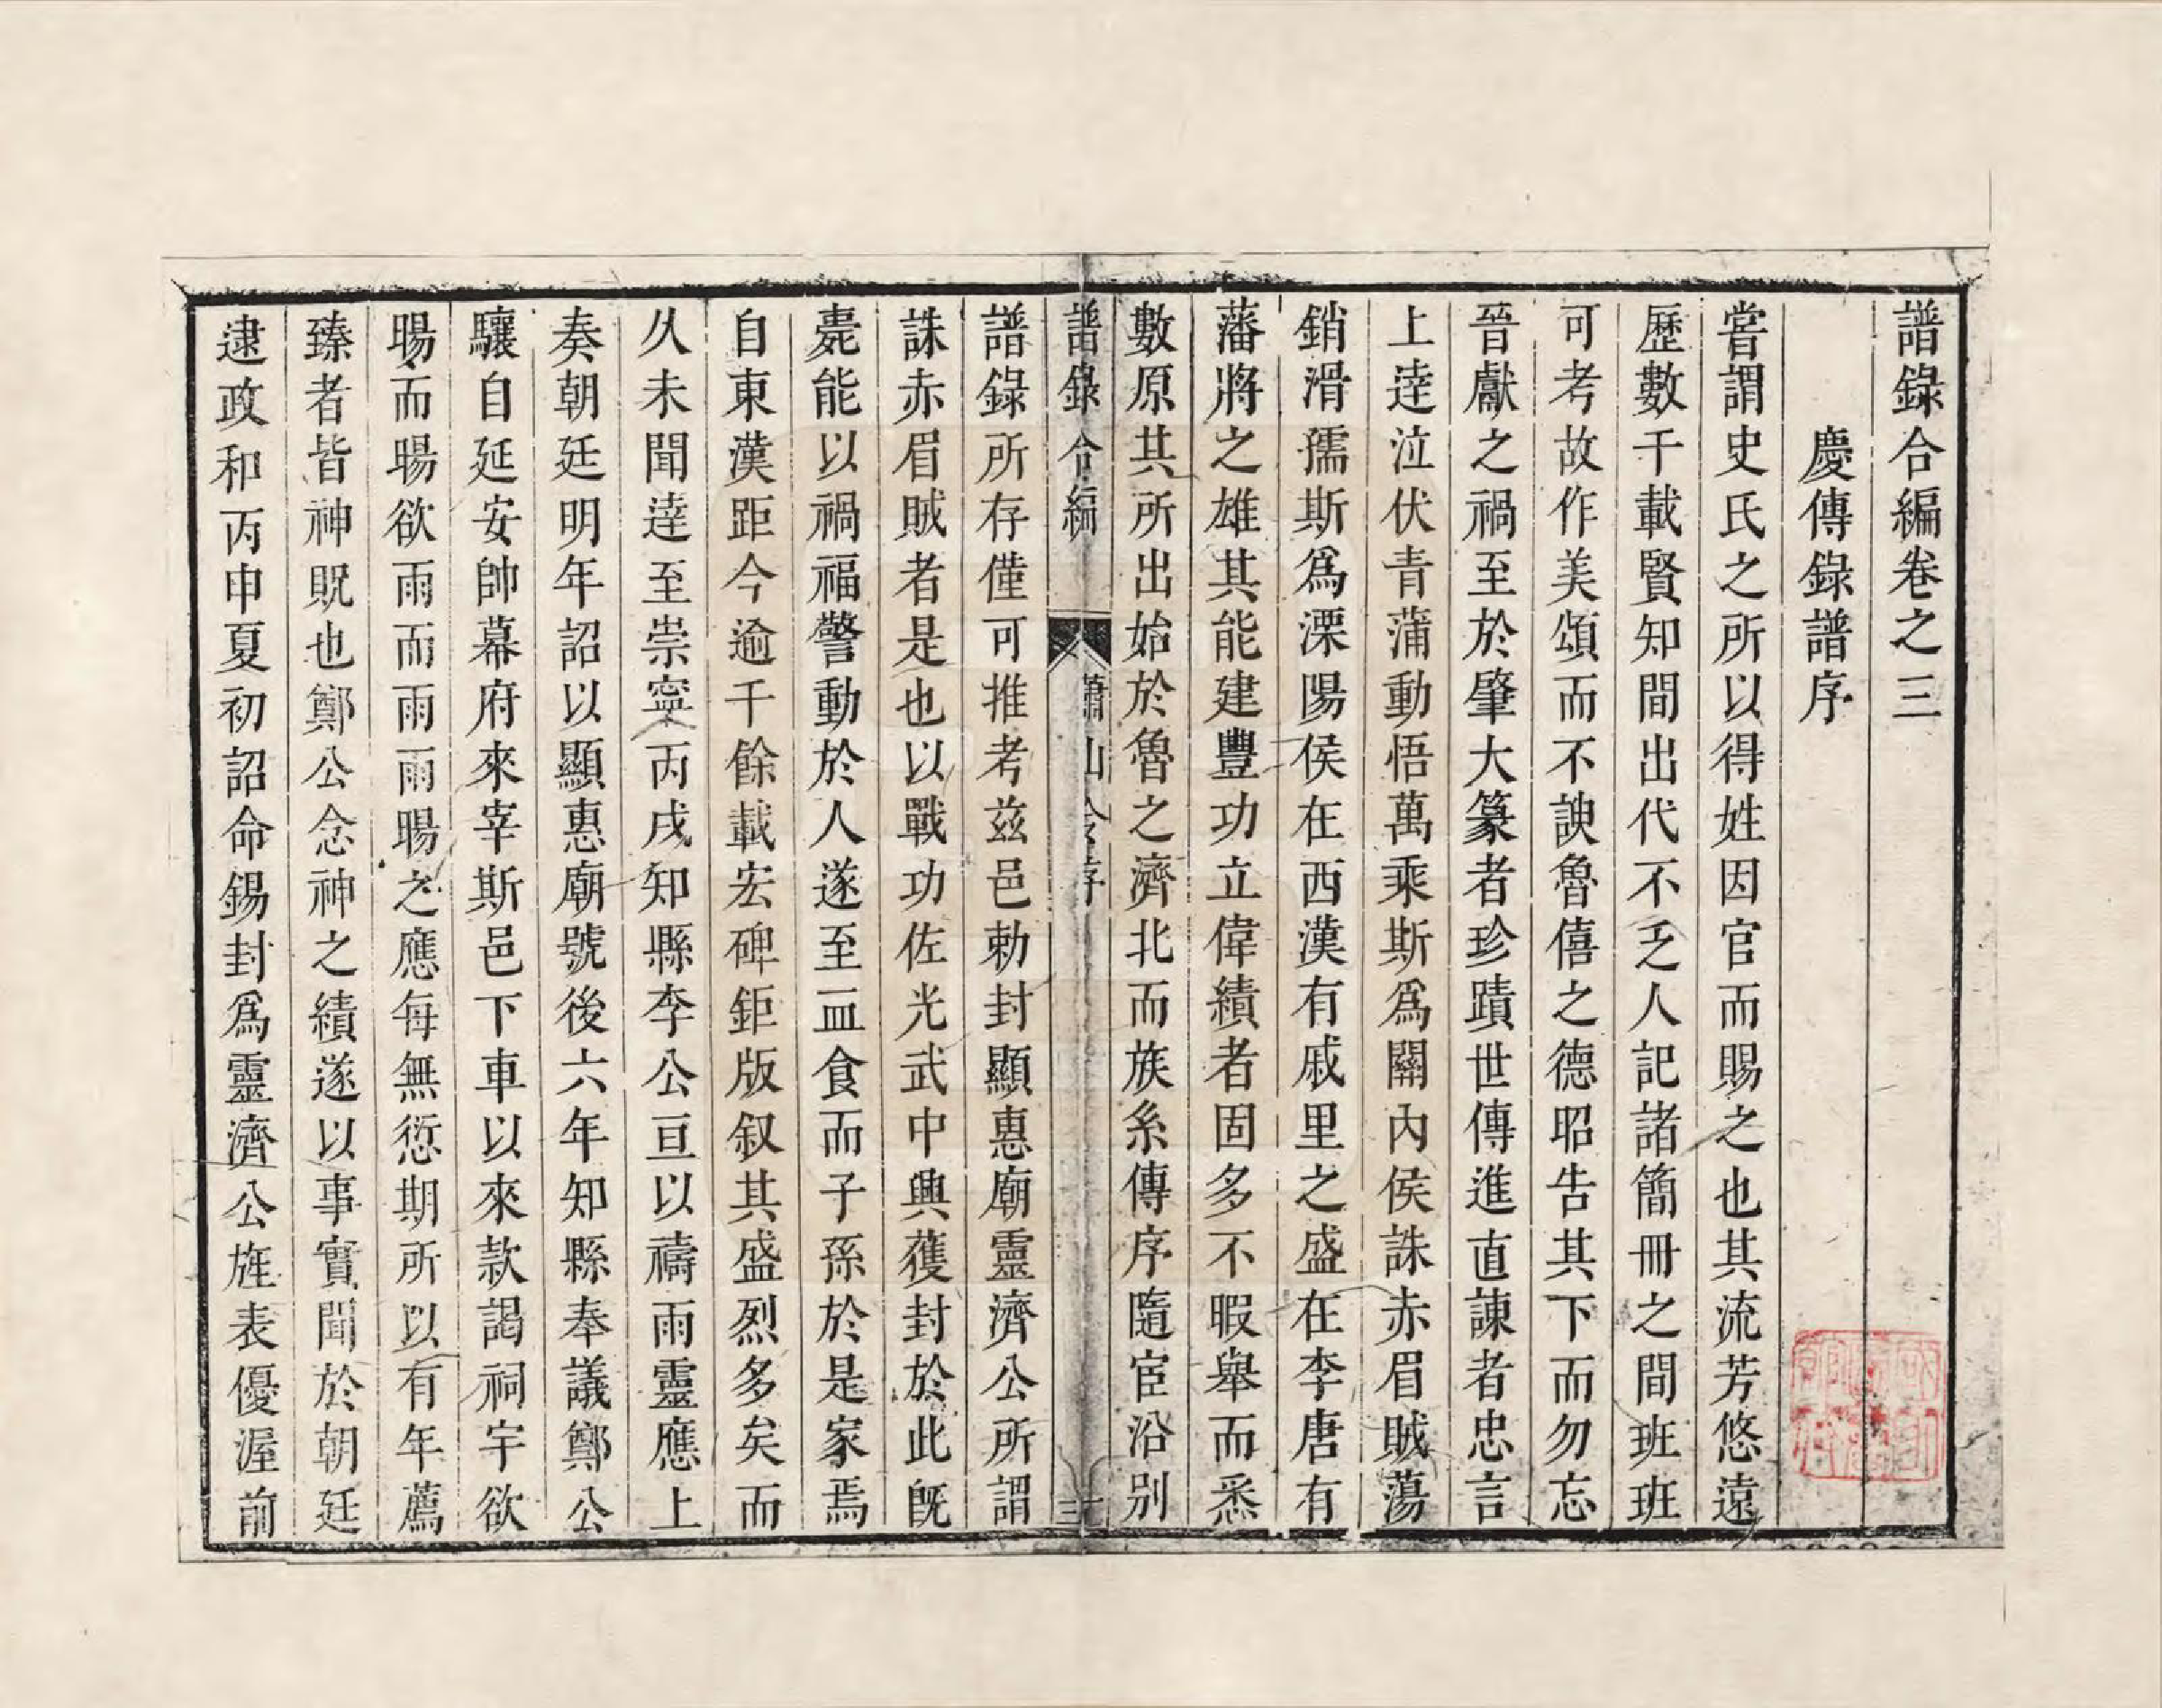 譜錄合編卷之三
慶傳錄譜序
嘗謂史氏之所以得姓因官而賜之也其流芳悠遠
歷數千載賢知間出代不乏人記諸簡冊之間班班
可考故作美頌而不諛魯僖之德昭告其下而勿忘
晉獻之禍至於肇大篆者珍蹟世傳進直諫者忠言
上逹泣伏青蒲動悟萬乘斯爲關內侯誅赤眉賊蕩
銷滑孺斯爲溧陽侯在西漢有戚里之盛在李唐有
藩將之雄其能建豐功立偉績者固多不暇舉而悉
數原其所出始於魯之濟北而族系傳序隨宦沿別
譜錄合編 蕭山 序 三
譜錄所存僅可推考兹邑勅封顯惠廟靈濟公所謂
誅赤眉賊者是也以戰功佐光武中興獲封於此旣
薨能以禍福警動於人遂至血食而子孫於是家焉
自東漢距今逾千餘載宏碑鉅版叙其盛烈多矣而
久未聞逹至崇寧丙戌知縣李公亘以禱雨靈應上
奏朝廷明年詔以顯惠廟號後六年知縣奉議鄭公
驤自延安帥幕府來宰斯邑下車以來款謁祠宇欲
暘而暘欲雨而雨雨暘之應每無愆期所以有年薦
臻者皆神貺也鄭公念神之績遂以事實聞於朝廷
逮政和丙申夏初詔命錫封爲靈濟公旌表優渥前